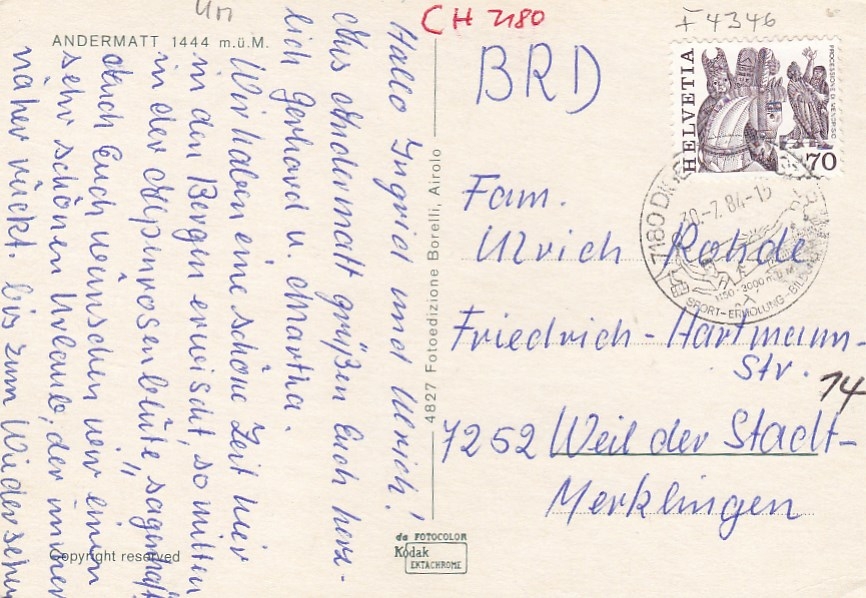 Un
CH 7180
F 4346
ANDERMATT 1444 m.ü.M.
Hallo Ingrid und Ulrich!
Aus Andermatt grüßen Euch herz-
lich Gerhard u. Martha.
Wir haben eine schöne Zeit hier
in den Bergen erwischt, so mitten
in der Alpenrosenblüte, "sagenhaft"
Auch Euch wünschen wir einen
sehr schönen Urlaub, der immer
näher rückt. bis zum Wiedersehn
Copyright reserved
4827 Fotoedizione Borelli, Airolo
da FOTOCOLOR
Kodak
EKTACHROME
BRD
Fam.
Ulrich Rohde
Friedrich-Hartmann-
Str. 14
7252 Weil der Stadt-
Merklingen
HELVETIA
70
7180 DI
30-7.84-15
1150-3000 m.ü.M.
SPORT-ERHOLUNG-BILDUNG